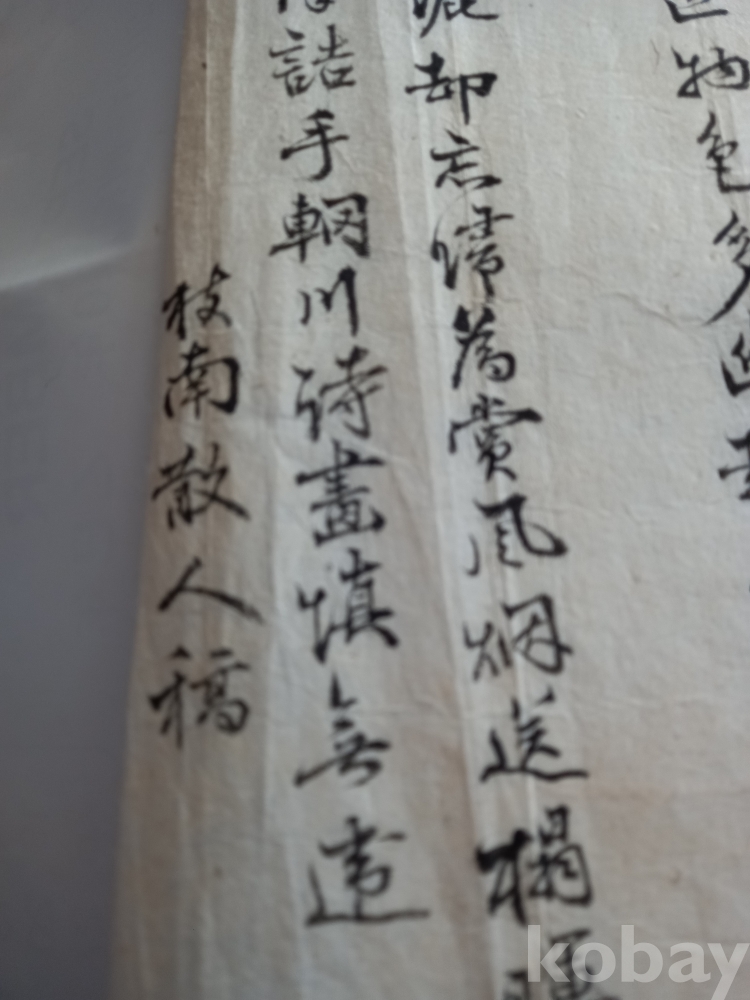 物色多
却忘歸為賞風烟送榻
詰手輞川詩畫慎無違
枝南散人稿
kobay